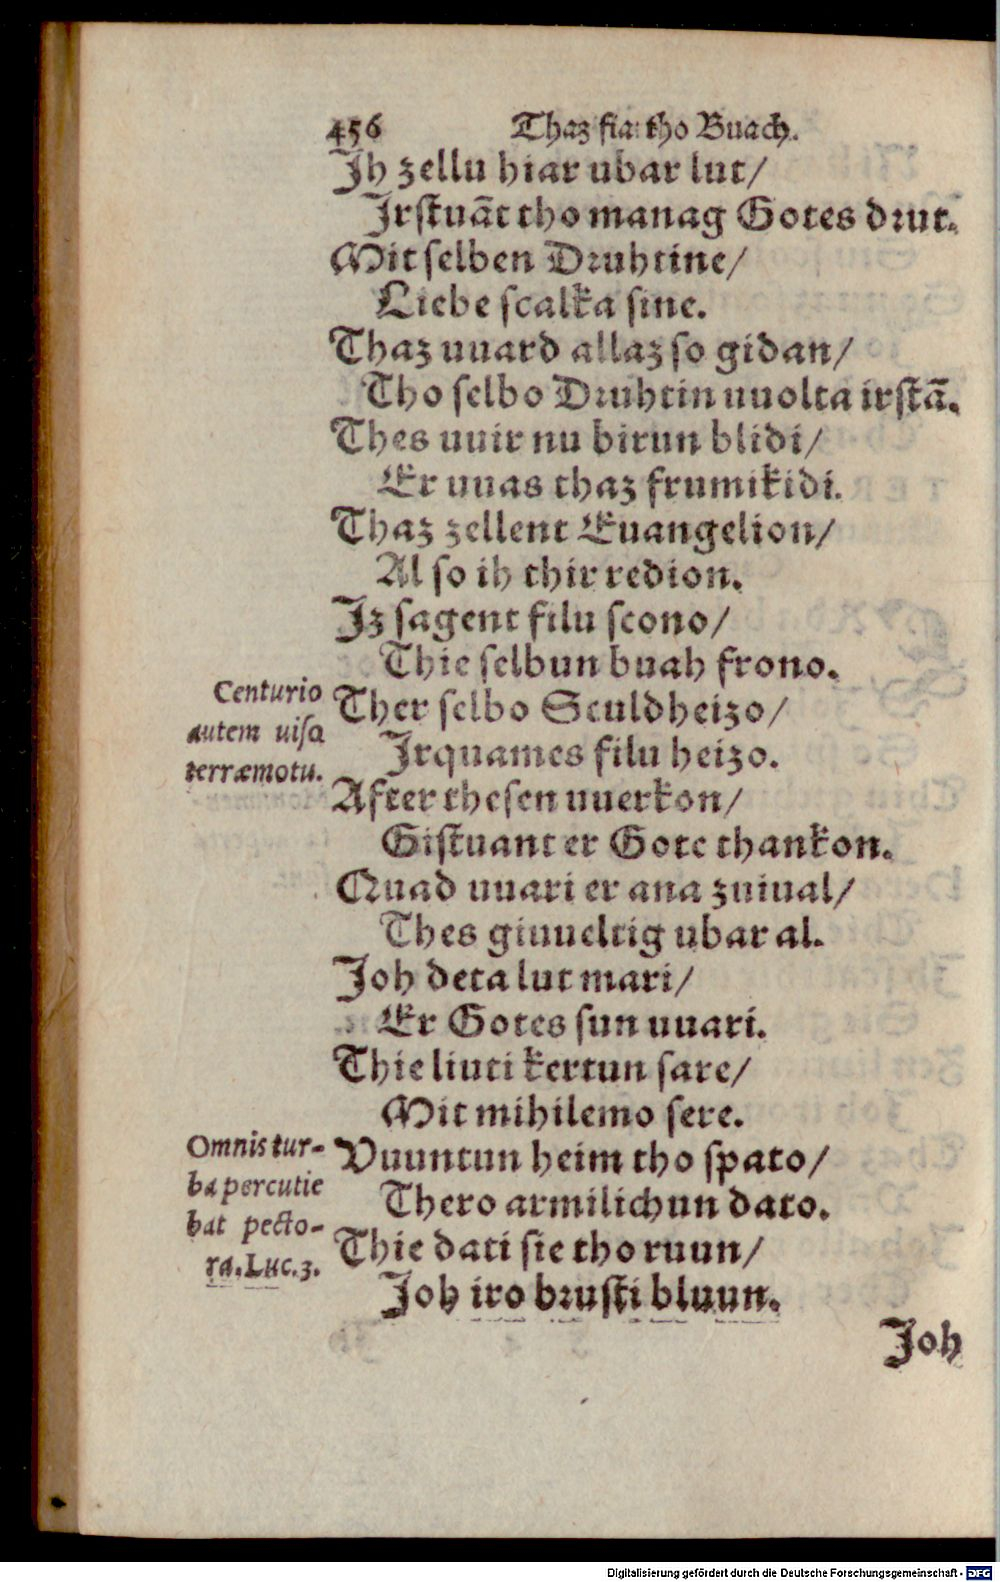 456 Thaz fiartho Buach.
Jh zellu hiar ubar lut/
Jrstuãt tho manag Gotes drut.
Mit selben Druhtine/
Liebe scalka sine.
Thaz uuard allaz so gidan/
Tho selbo Druhtin uuolta irstã.
Thes uuir nu birun blidi/
Er uuas thaz frumikidi.
Thaz zellent Euangelion/
Al so ih thir redion.
Jz sagent filu scono/
Thie selbun buah frono.
Centurio
autem uisa
terræmotu.
Ther selbo Sculdheizo/
Jrquames filu heizo.
After thesen uuerkon/
Gistuant er Gote thankon.
Quad uuari er ana zuiual/
Thes giuueltig ubar al.
Joh deta lut mari/
Er Gotes sun uuari.
Thie liuti kertun sare/
Mit mihilemo sere.
Omnis tur-
ba percutie
bat pecto-
ra. Luc. 3.
Vuuntun heim tho spato/
Thero armilichun dato.
Thie dati sie tho ruun/
Joh iro brusti bluun.
Joh
Digitalisierung gefördert durch die Deutsche Forschungsgemeinschaft - DFG